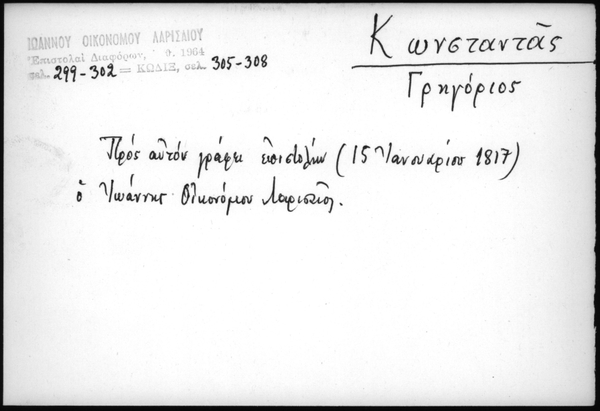 ΙΩΑΝΝΟΥ ΟΙΚΟΝΟΜΟΥ ΛΑΡΙΣΑΙΟΥ
Ἐπιστολαὶ Διαφόρων, Ἀθ. 1964
σελ. 299-302 = ΚΩΔΙΞ, σελ. 305-308
Κωνσταντᾶς
Γρηγόριος
Πρός αὐτόν γράφει ἐπιστολήν (15 Ἰανουαρίου 1817)
ὁ Ἰωάννης Οἰκονόμου Λαρισαῖος.